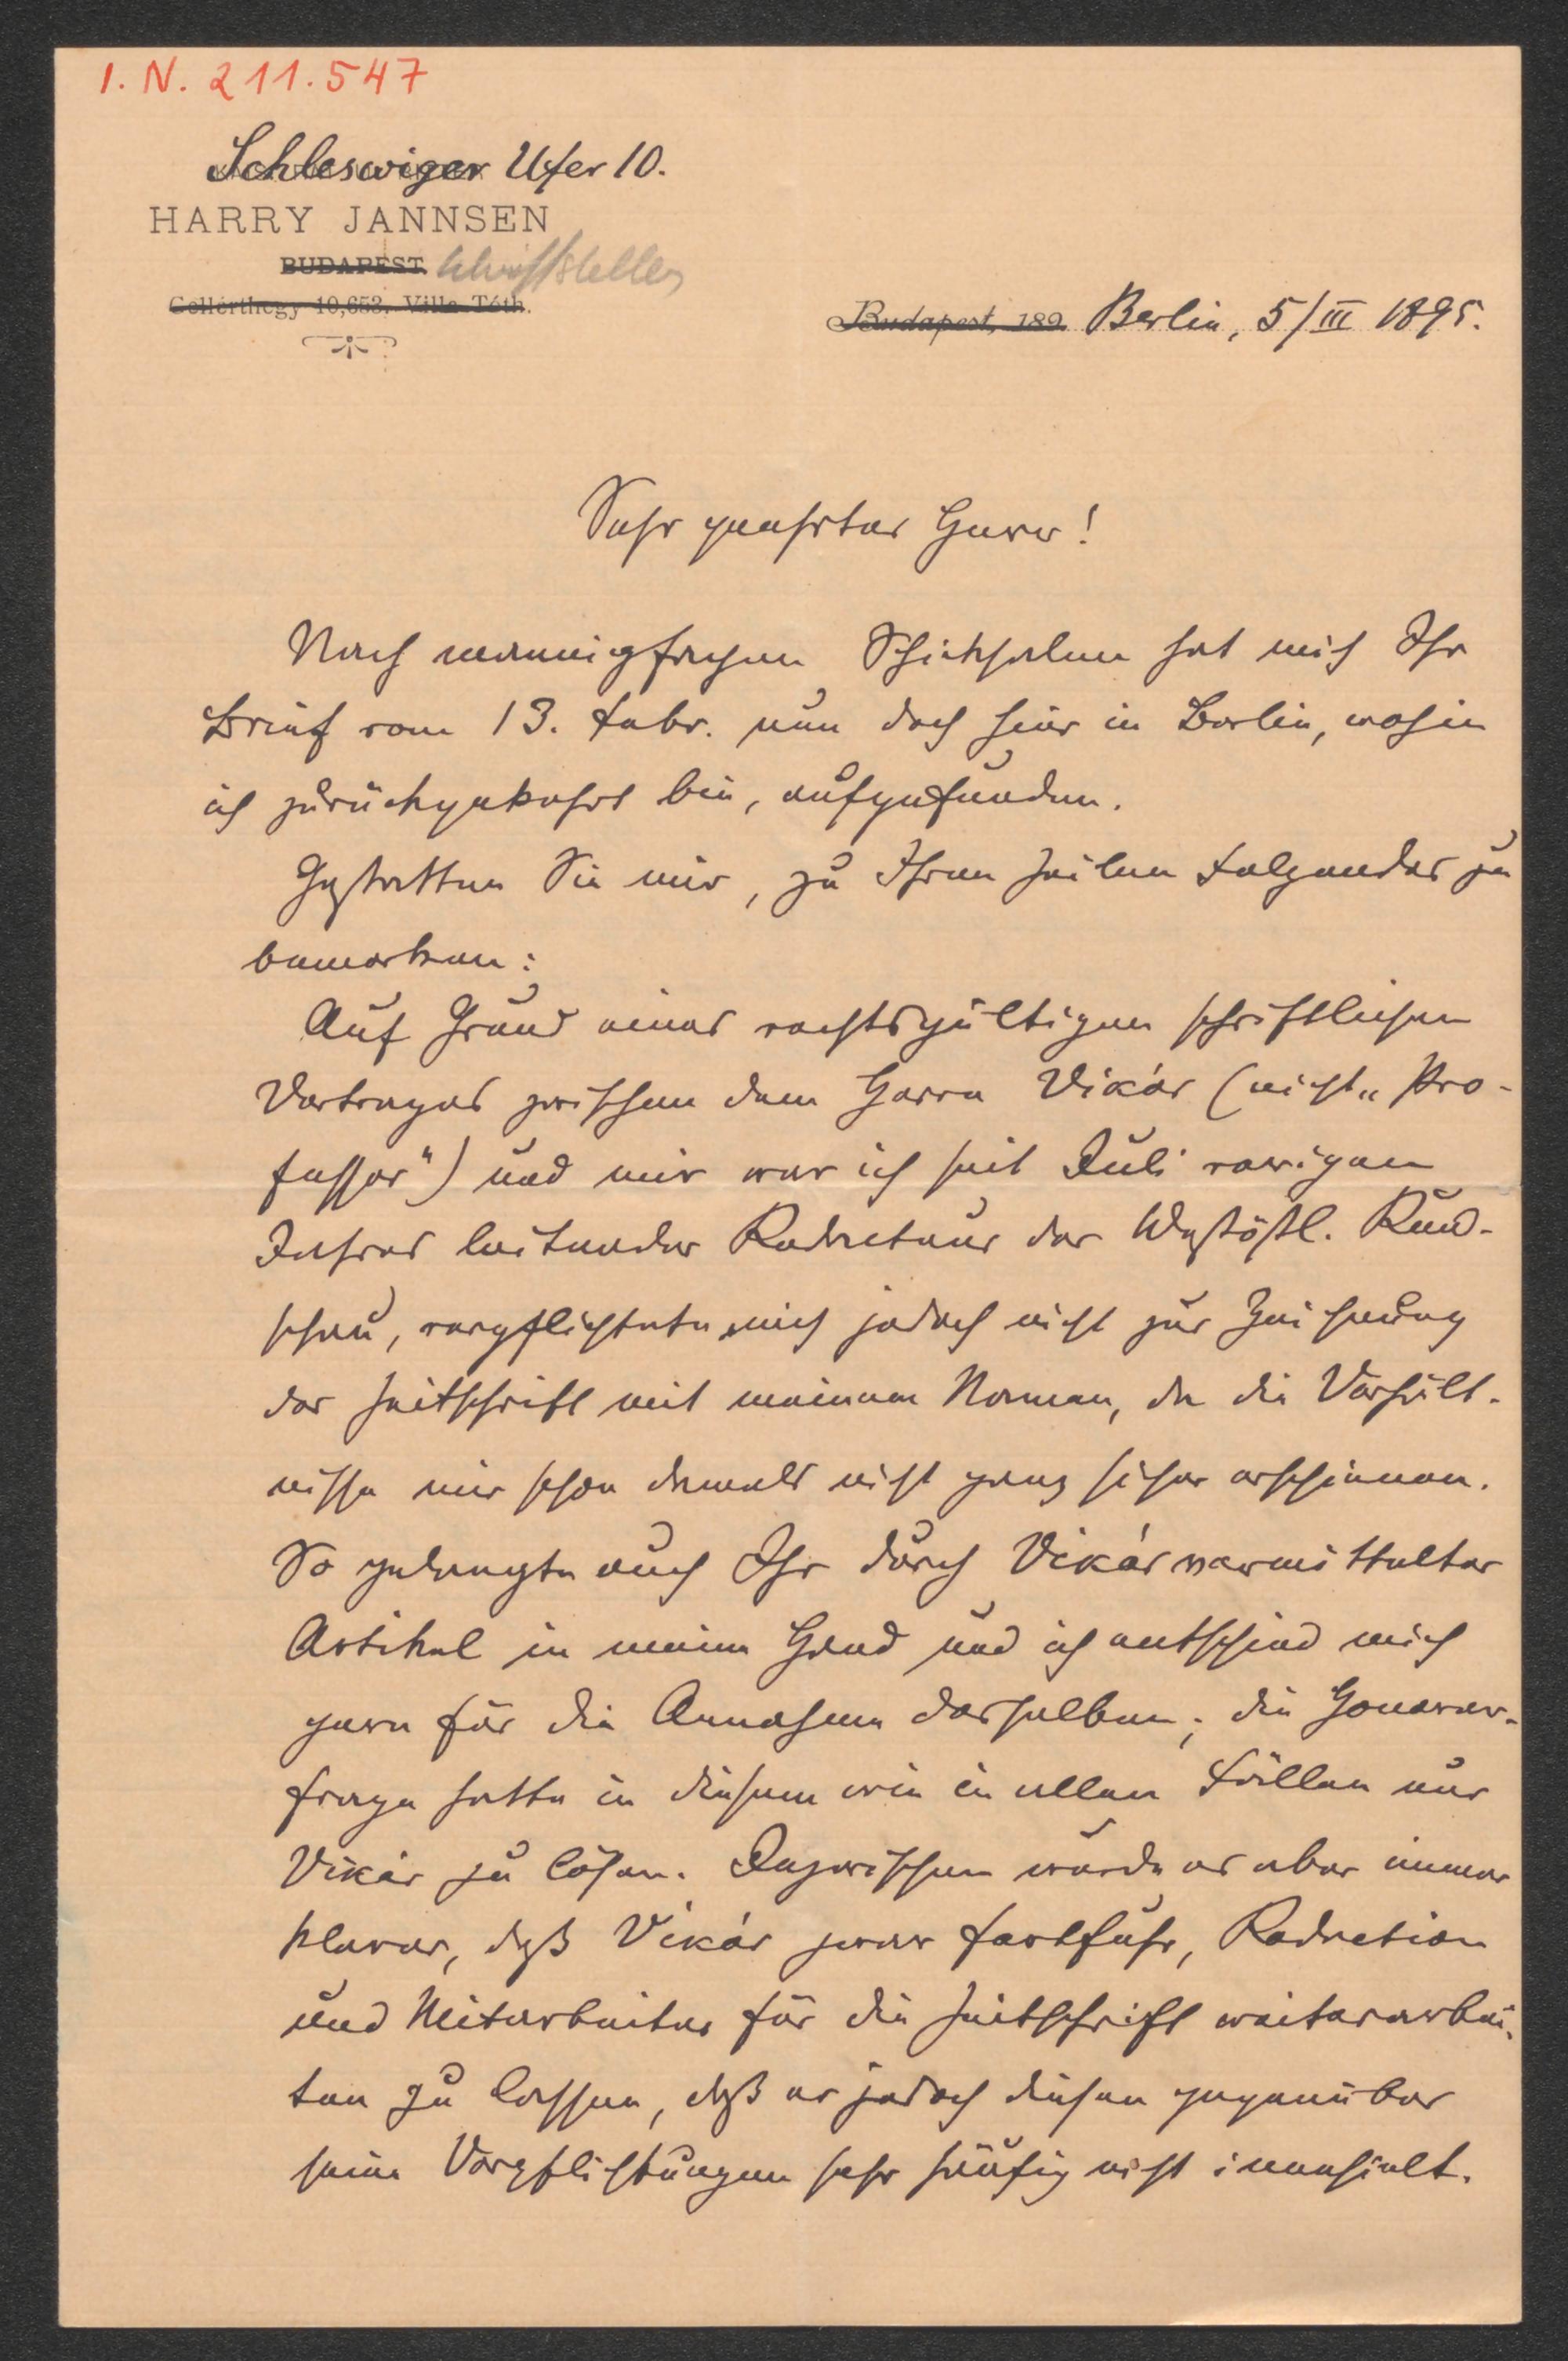 I. N. 211.547
Schleswiger Ufer 10.
HARRY JANNSEN
BUDAPEST Schriftsteller
Gellérthegy 10,653. Villa Tóth.
Budapest, 189 Berlin, 5/III 1895.
Sehr geehrter Herr!
Nach mannigfachen Schicksalen hat mich Ihr
Brief vom 13. Febr. nun doch hier in Berlin, wohin
ich zurückgekehrt bin, aufgefunden.
Gestatten Sie mir, zu Ihren Zeilen Folgendes zu
bemerken:
Auf Grund eines rechtsgültigen schriftlichen
Vertrages zwischen dem Herrn Vikár (nicht „Pro-
fessor") und mir war ich seit Juli vorigen
Jahres leitender Redacteur der Westöstl. Rund-
schau, verpflichtete mich jedoch nicht zur Zeichnung
der Zeitschrift mit meinem Namen, da die Verhält-
nisse mir schon damals nicht ganz sicher erschienen.
So gelangte auch Ihr durch Vikár vermittelter
Artikel in meine Hand und ich entschied mich
gern für die Annahme desselben; die Honorar-
frage hatte in diesem wie in allen Fällen nur
Vikár zu lösen. Inzwischen wurde es aber immer
klarer, daß Vikár zwar fortfuhr, Redaction
und Mitarbeiter für die Zeitschrift weiterarbei-
ten zu lassen, daß er jedoch diesen gegenüber
seine Verpflichtungen sehr häufig nicht innehielt.